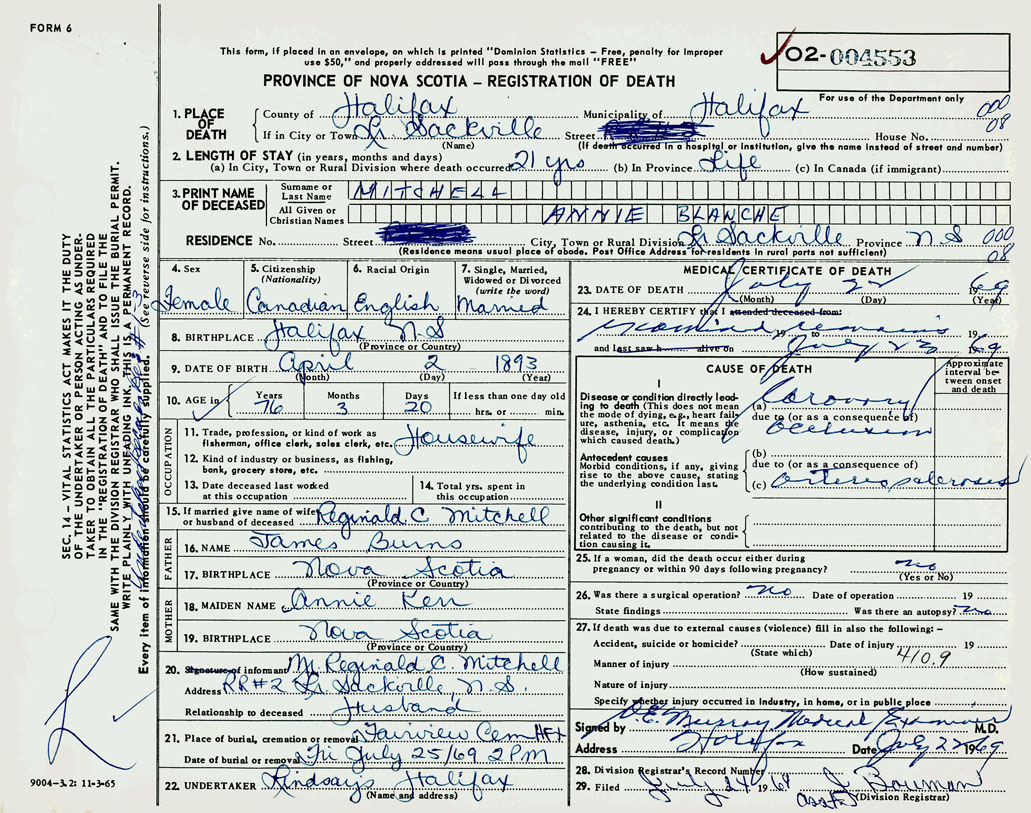 FORM 6
This form, if placed in an envelope, on which is printed "Dominion Statistics – Free, penalty for improper
use $50," and properly addressed will pass through the mail "FREE"
02-004553
PROVINCE OF NOVA SCOTIA – REGISTRATION OF DEATH
For use of the Department only
1. PLACE OF DEATH
County of Halifax Municipality of Halifax 000
If in City or Town Lr Sackville Street House No. 08
(Name) (If death occurred in a hospital or institution, give the name instead of street and number)
2. LENGTH OF STAY (in years, months and days)
(a) In City, Town or Rural Division where death occurred 21 yrs (b) In Province Life (c) In Canada (if immigrant)
3. PRINT NAME OF DECEASED
Surname or Last Name MITCHELL
All Given or Christian Names ANNIE BLANCHE
RESIDENCE No. Street City, Town or Rural Division Lr Sackville Province N S 000
(Residence means usual place of abode. Post Office Address for residents in rural parts not sufficient) 08
4. Sex Female
5. Citizenship (Nationality) Canadian
6. Racial Origin English
7. Single, Married, Widowed or Divorced (write the word) Married
8. BIRTHPLACE Halifax N.S
(Province or Country)
9. DATE OF BIRTH April 2 1893
(Month) (Day) (Year)
10. AGE in Years 76 Months 3 Days 20 If less than one day old hrs. or min.
OCCUPATION
11. Trade, profession or kind of work as fisherman, office clerk, sales clerk, etc. Housewife
12. Kind of industry or business, as fishing, bank, grocery store, etc.
13. Date deceased last worked at this occupation
14. Total yrs. spent in this occupation
15. If married give name of wife or husband of deceased Reginald C Mitchell
FATHER
16. NAME James Burns
17. BIRTHPLACE Nova Scotia
(Province or Country)
MOTHER
18. MAIDEN NAME Annie Kerr
19. BIRTHPLACE Nova Scotia
(Province or Country)
20. Signature of informant M. Reginald C. Mitchell
Address RR#2 Lr Sackville, N.S.
Relationship to deceased Husband
21. Place of burial, cremation or removal Fairview Cem HFX
Date of burial or removal Fri July 25/69 2 P.M.
22. UNDERTAKER Lindsay's Halifax
(Name and address)
MEDICAL CERTIFICATE OF DEATH
23. DATE OF DEATH July 22 69
(Month) (Day) (Year)
24. I HEREBY CERTIFY that I attended deceased from:
examined remains 19 to 19
and last saw h alive on July 23 1969
CAUSE OF DEATH
Approximate interval between onset and death
I
Disease or condition directly leading to death (This does not mean the mode of dying, e.g., heart failure, asthenia, etc. It means the disease, injury, or complication which caused death.)
(a) Coronary
due to (or as a consequence of)
occlusion
Antecedent causes
Morbid conditions, if any, giving rise to the above cause, stating the underlying condition last.
(b)
due to (or as a consequence of)
(c) arteriosclerosis
II
Other significant conditions
contributing to the death, but not related to the disease or condition causing it.
25. If a woman, did the death occur either during pregnancy or within 90 days following pregnancy? no
(Yes or No)
26. Was there a surgical operation? no Date of operation 19
State findings Was there an autopsy? no
27. If death was due to external causes (violence) fill in also the following: –
Accident, suicide or homicide? Date of injury 19
(State which) 410.9
Manner of injury
(How sustained)
Nature of injury
Specify whether injury occurred in Industry, in home, or in public place
Signed by D.E. Murray Medical Examiner M.D.
Address Halifax Date July 22 1969
28. Division Registrar's Record Number
29. Filed July 24 1969 Bowman
asst (Division Registrar)
SEC. 14 – VITAL STATISTICS ACT MAKES IT THE DUTY
OF THE UNDERTAKER OR PERSON ACTING AS UNDER-
TAKER TO OBTAIN ALL THE PARTICULARS REQUIRED
IN THE "REGISTRATION OF DEATH" AND TO FILE THE
SAME WITH THE DIVISION REGISTRAR WHO SHALL ISSUE THE BURIAL PERMIT.
WRITE PLAINLY WITH UNFADING INK. THIS IS A PERMANENT RECORD.
Every item of information should be carefully supplied. (See reverse side for instructions.)
9004-3.2: 11-3-65